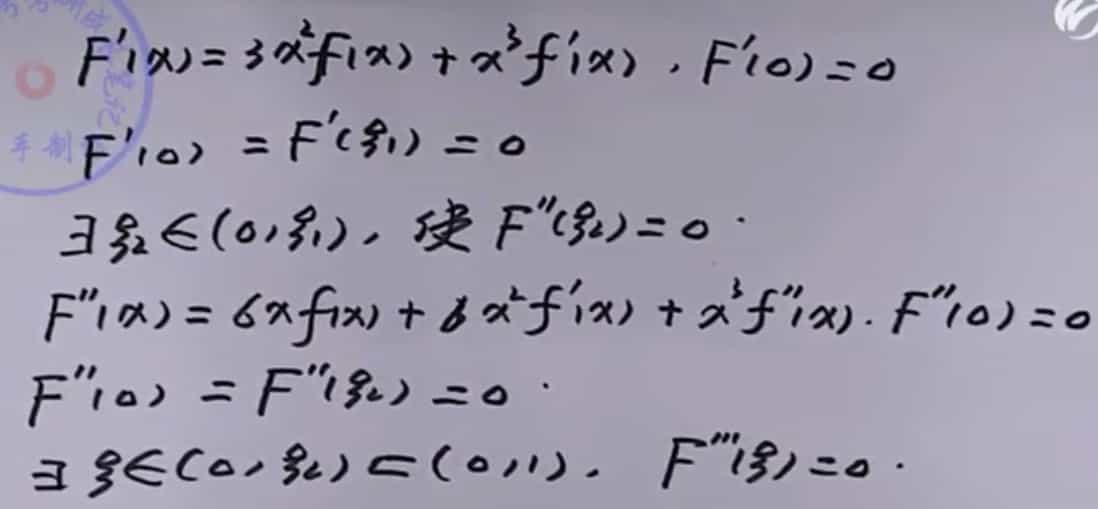 F'(x) = 3x²f(x) + x³f'(x) , F'(0) = 0
F'(0) = F'(ξ₁) = 0
∃ξ₂∈(0,ξ₁), 使 F''(ξ₂) = 0 .
F''(x) = 6xf(x) + 6x²f'(x) + x³f''(x). F''(0) = 0
F''(0) = F''(ξ₂) = 0 .
∃ξ∈(0,ξ₂)⊂(0,1). F'''(ξ) = 0 .
手制